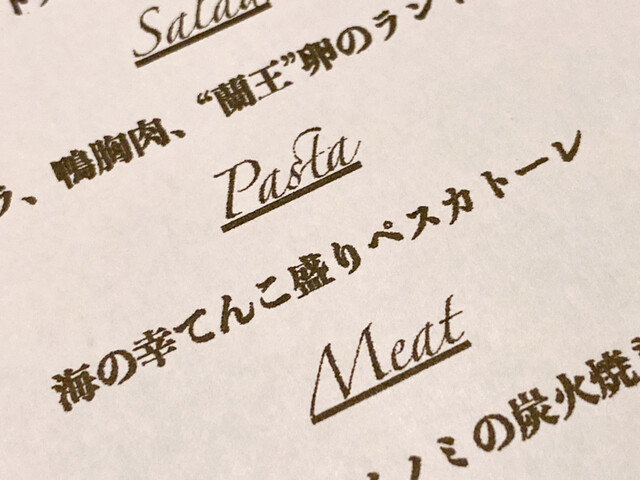 Salad
鴨胸肉、“蘭王”卵のラン
Pasta
海の幸てんこ盛りペスカトーレ
Meat
ノミの炭火焼